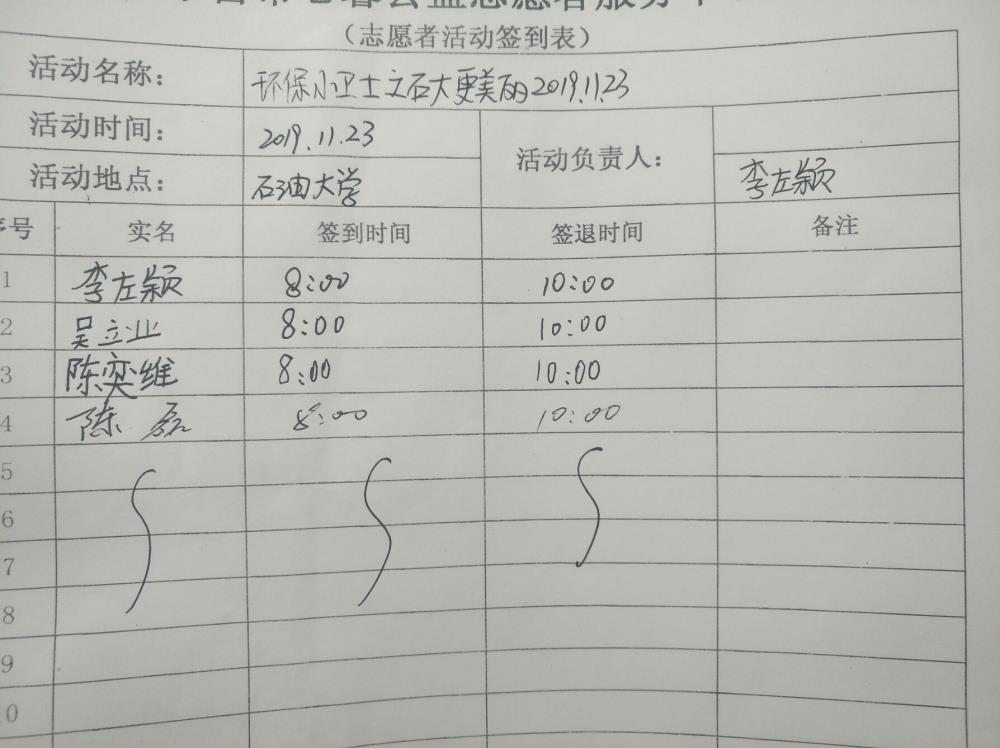 公益志愿者服务
(志愿者活动签到表)
活动名称: 环保小卫士之石大更美丽2019.11.23
活动时间: 2019.11.23 活动负责人:
活动地点: 石油大学 李左颖
序号 实名 签到时间 签退时间 备注
1 李左颖 8:00 10:00
2 吴立业 8:00 10:00
3 陈奕维 8:00 10:00
4 陈磊 8:00 10:00
5
6
7
8
9
10